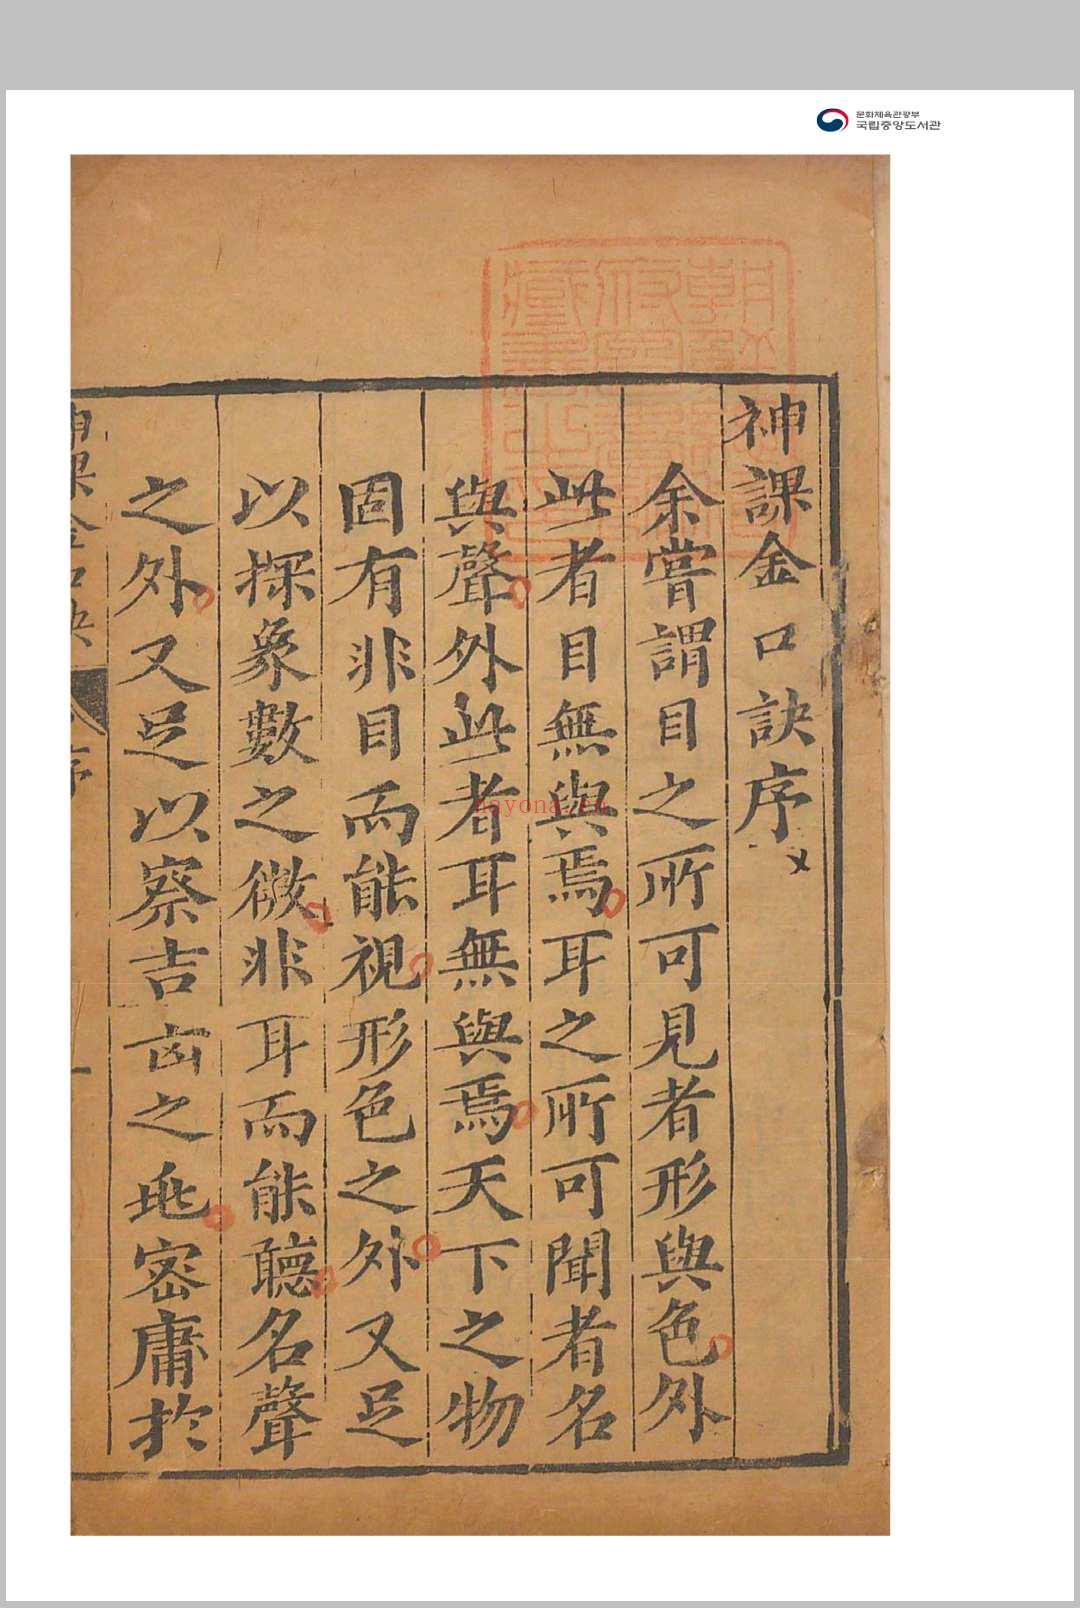 문화체육관광부
국립중앙도서관
神課金口訣序
余嘗謂目之所可見者形與色外
此者目無與焉耳之所可聞者名
與聲外此者耳無與焉天下之物
固有非目而能視形色之外又足
以探象數之微非耳而能聽名聲
之外又足以察吉凶之兆密庸於
神課金口訣
序
一